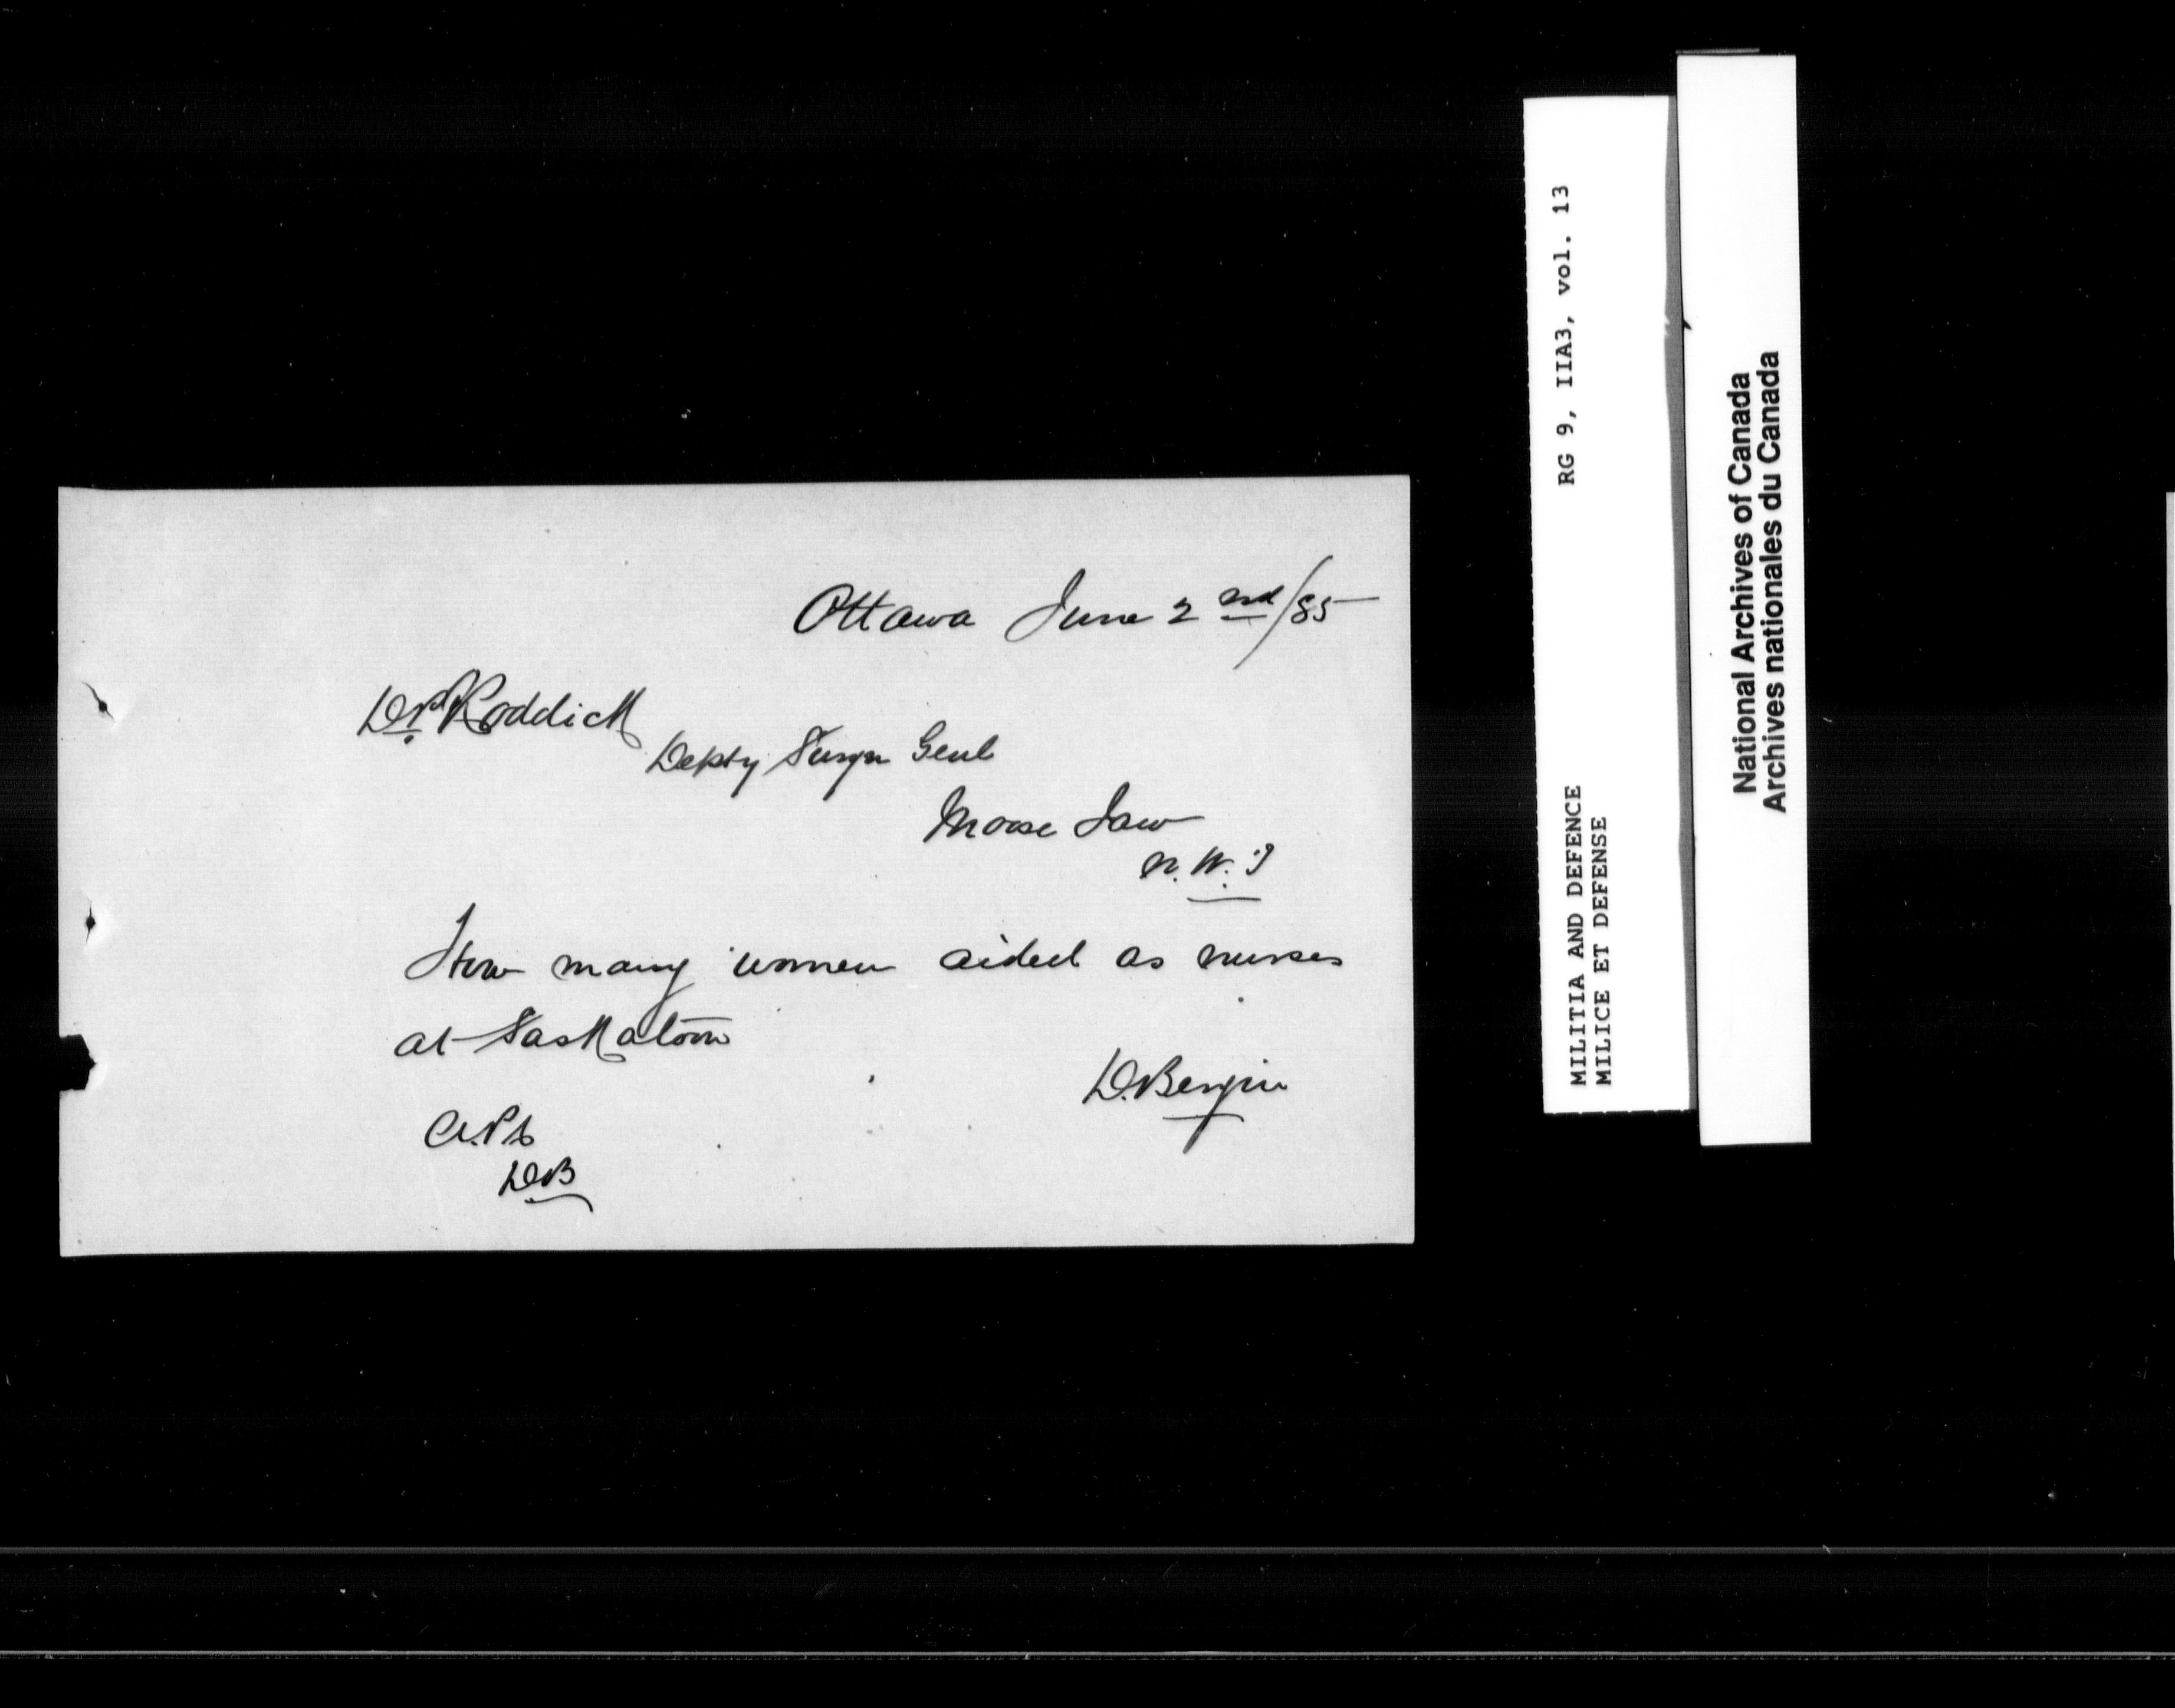 Ottawa June 2nd/85
Dr. Roddick
Depty Surgn Genl
Moose Jaw
N.W.T
How many women aided as nurses
at Saskatoon
D. Bergin
DB
RG 9, IIA3, vol. 13
MILITIA AND DEFENCE
MILICE ET DEFENSE
National Archives of Canada
Archives nationales du Canada